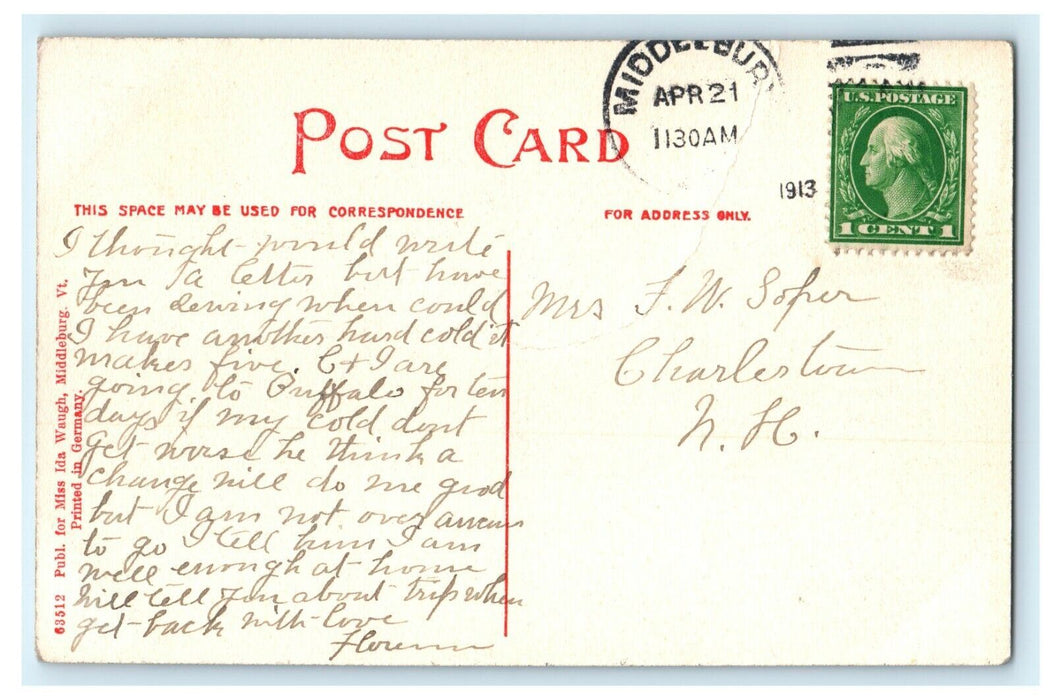 MIDDLEBUR
APR 21
1130AM
1913
U.S. POSTAGE
1 CENT 1
POST CARD
THIS SPACE MAY BE USED FOR CORRESPONDENCE
FOR ADDRESS ONLY.
I thought would write
you a letter but have
been sewing when could
I have another hard cold it
makes five. C + I are
going to Buffalo for ten
days if my cold dont
get worse he think a
change will do me good
but I am not over
to go I tell him I am
well enough at home
will tell you about trip when
get back with love
Mrs F. W. Soper
Charlestown
N. H.
63512 Publ. for Miss Ida Waugh, Middleburg. Vt.
Printed in Germany.